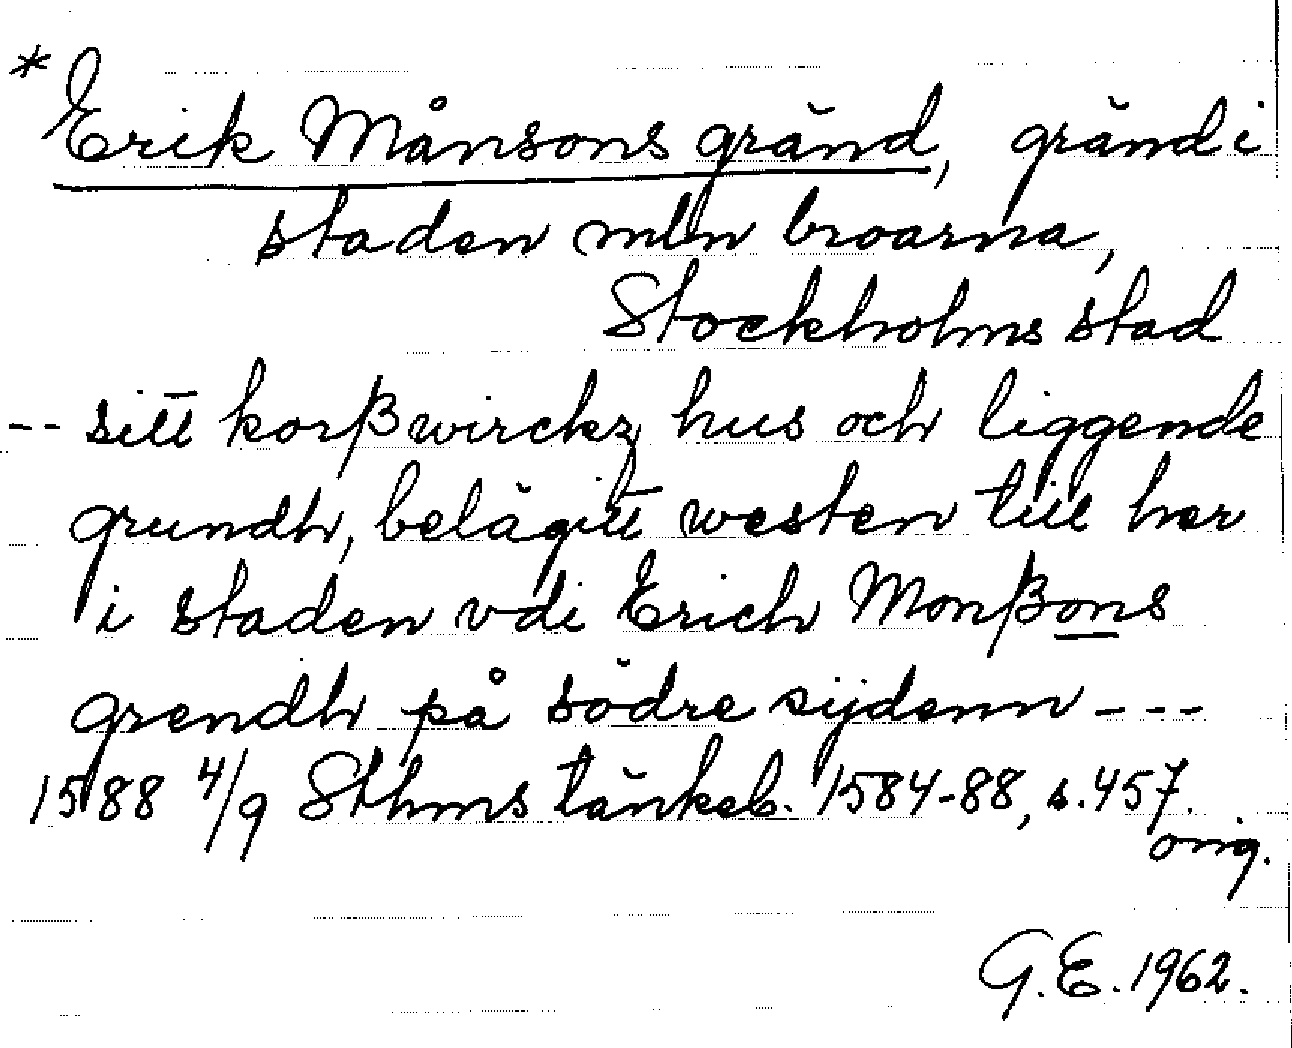 * Erik Månsons gränd, gränd i
staden mln broarna,
Stockholms stad
-- sitt korßwirckz hus och liggende
grundh, belägitt westen till her
i staden vdi Erich Monßons
grendh på södre sijdenn ---
1588 4/9 Sthms tänkeb. 1584-88, s. 457.
orig.
G.E. 1962.